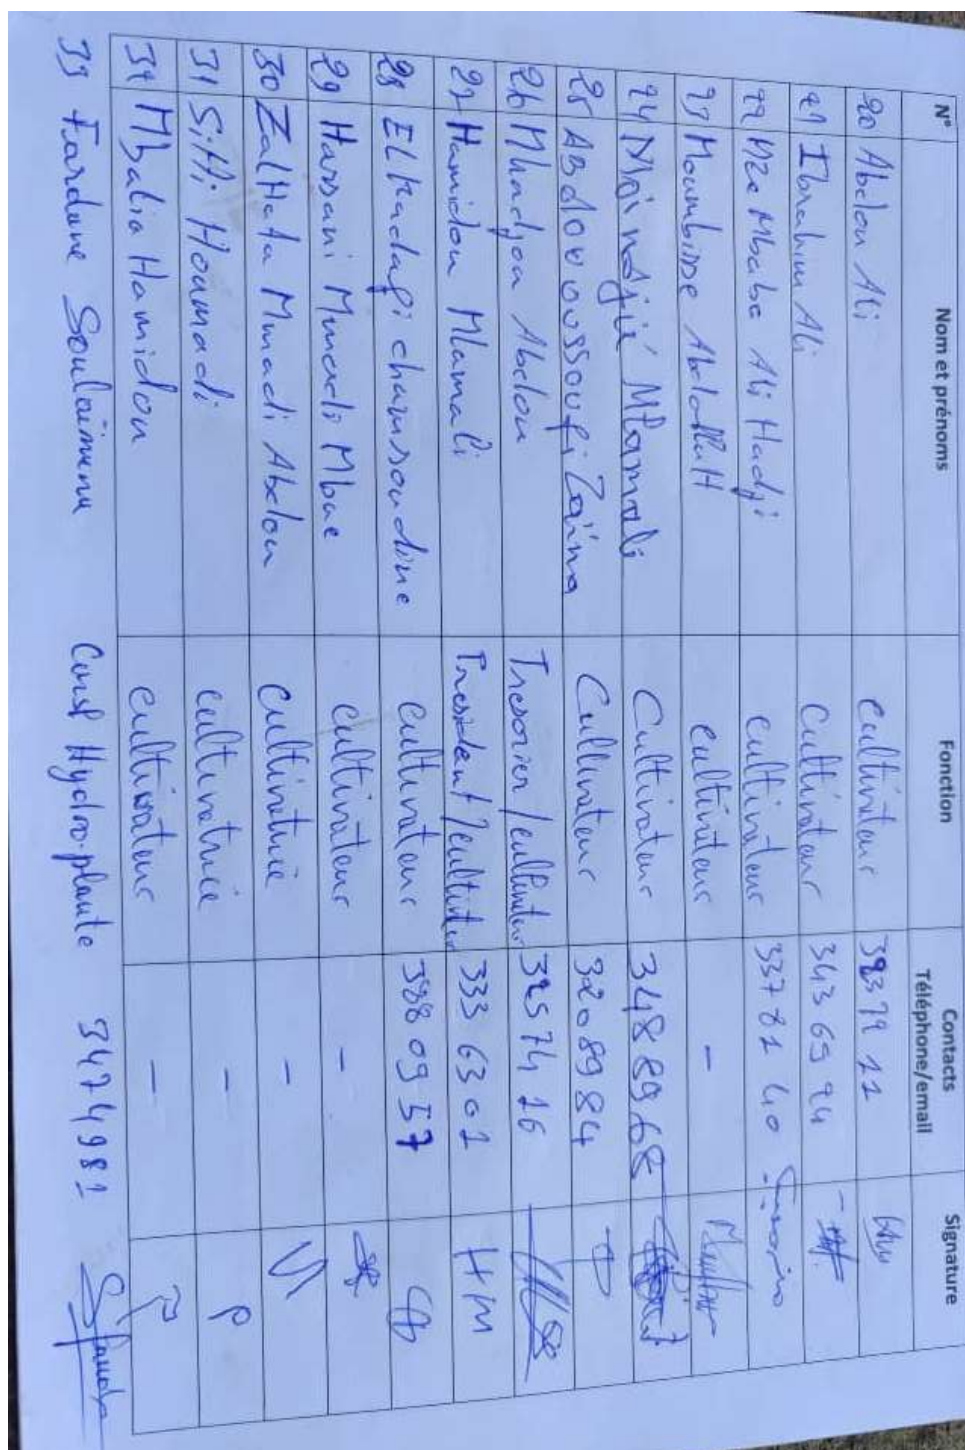 N° Nom et prénoms Fonction Contacts Téléphone/email Signature
20 Abdou Ali Cultivateur 3237911
21 Ibrahim Ali Cultivateur 3436994
22 Mze Mbaba Ali Hadji Cultivateur 3378140
23 Moumbine AbdallaH Cultivateur -
24 Moindjié Mlamali Cultivateur 3488968
25 ABdou oussoufi Zaïna Cultivateur 3208984
26 Mhadjou Abdou Tresorier/cultivateur 3257416
27 Hamidou Mlamali President/cultivateur 3336301
28 Elkadafi chamsoudine Cultivateur 3880957
29 Hassani Mmadi Mbae Cultivateur -
30 ZalHata Mmadi Abdou Cultivatrice -
31 Sitti Houmadi Cultivatrice -
32 Mbalia Hamidou Cultivateur -
33 Fardane Soulaimana Hydro-plante 3474981